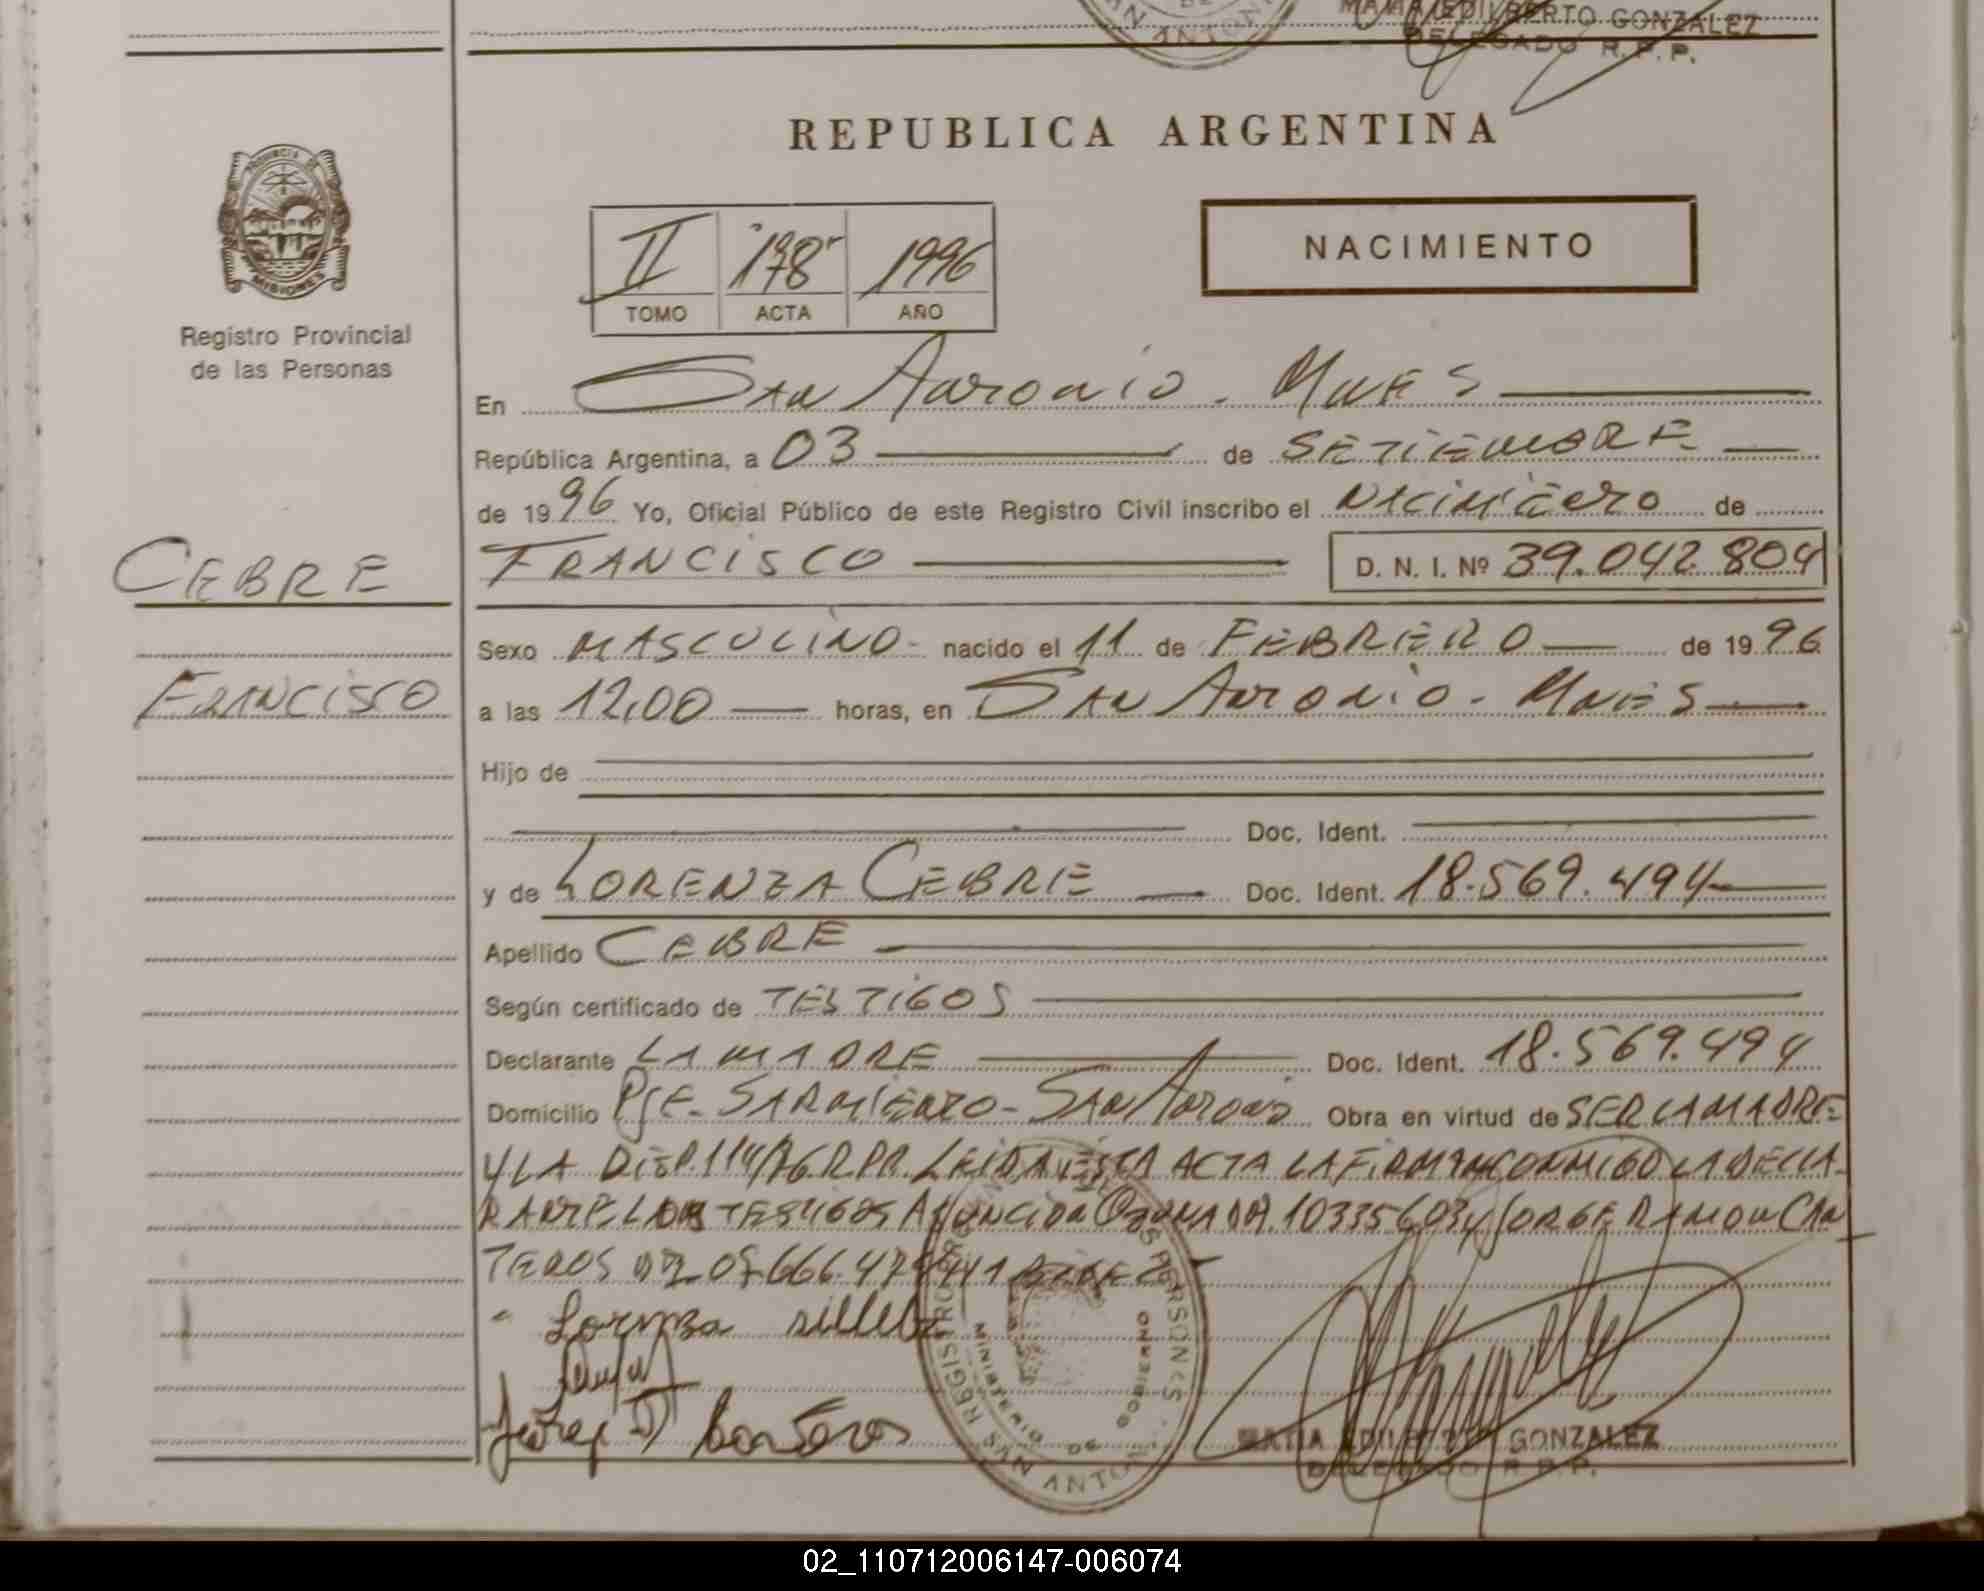 MARIA EDILBERTO GONZALEZ
DELEGADO R. P. P.
SAN ANTONIO
REPUBLICA ARGENTINA
PROVINCIA DE
MISIONES
Registro Provincial
de las Personas
II 178 1996
TOMO ACTA AÑO
NACIMIENTO
En San Antonio - Mnes
República Argentina, a 03 de SETIEMBRE
de 1996 Yo, Oficial Público de este Registro Civil inscribo el NACIMIENTO de
CEBRE
FRANCISCO D. N. I. Nº 39.042.804
Sexo MASCULINO - nacido el 11 de FEBRERO de 1996
FRANCISCO
a las 12,00 horas, en San Antonio - Mnes
Hijo de
Doc. Ident.
y de LORENZA CEBRE Doc. Ident. 18.569.494
Apellido CEBRE
Según certificado de TESTIGOS
Declarante LA MADRE Doc. Ident. 18.569.494
Domicilio Pje. SARMIENTO - San Antonio Obra en virtud de SER LA MADRE
Y LA DISP. 114/76 R.P.P. LEIDA ESTA ACTA LA FIRMAN CONMIGO LA DECLA-
RANTE LOS TESTIGOS ASUNCION 10335603 Y JORGE RAMON CAN
TEROS
Lorenza
Jorge R Canteros
REGISTRO DE LAS PERSONAS
MINISTERIO DE GOBIERNO
SAN ANTONIO
MARIA EDILBERTO GONZALEZ
DELEGADO R. P. P.
02_110712006147-006074